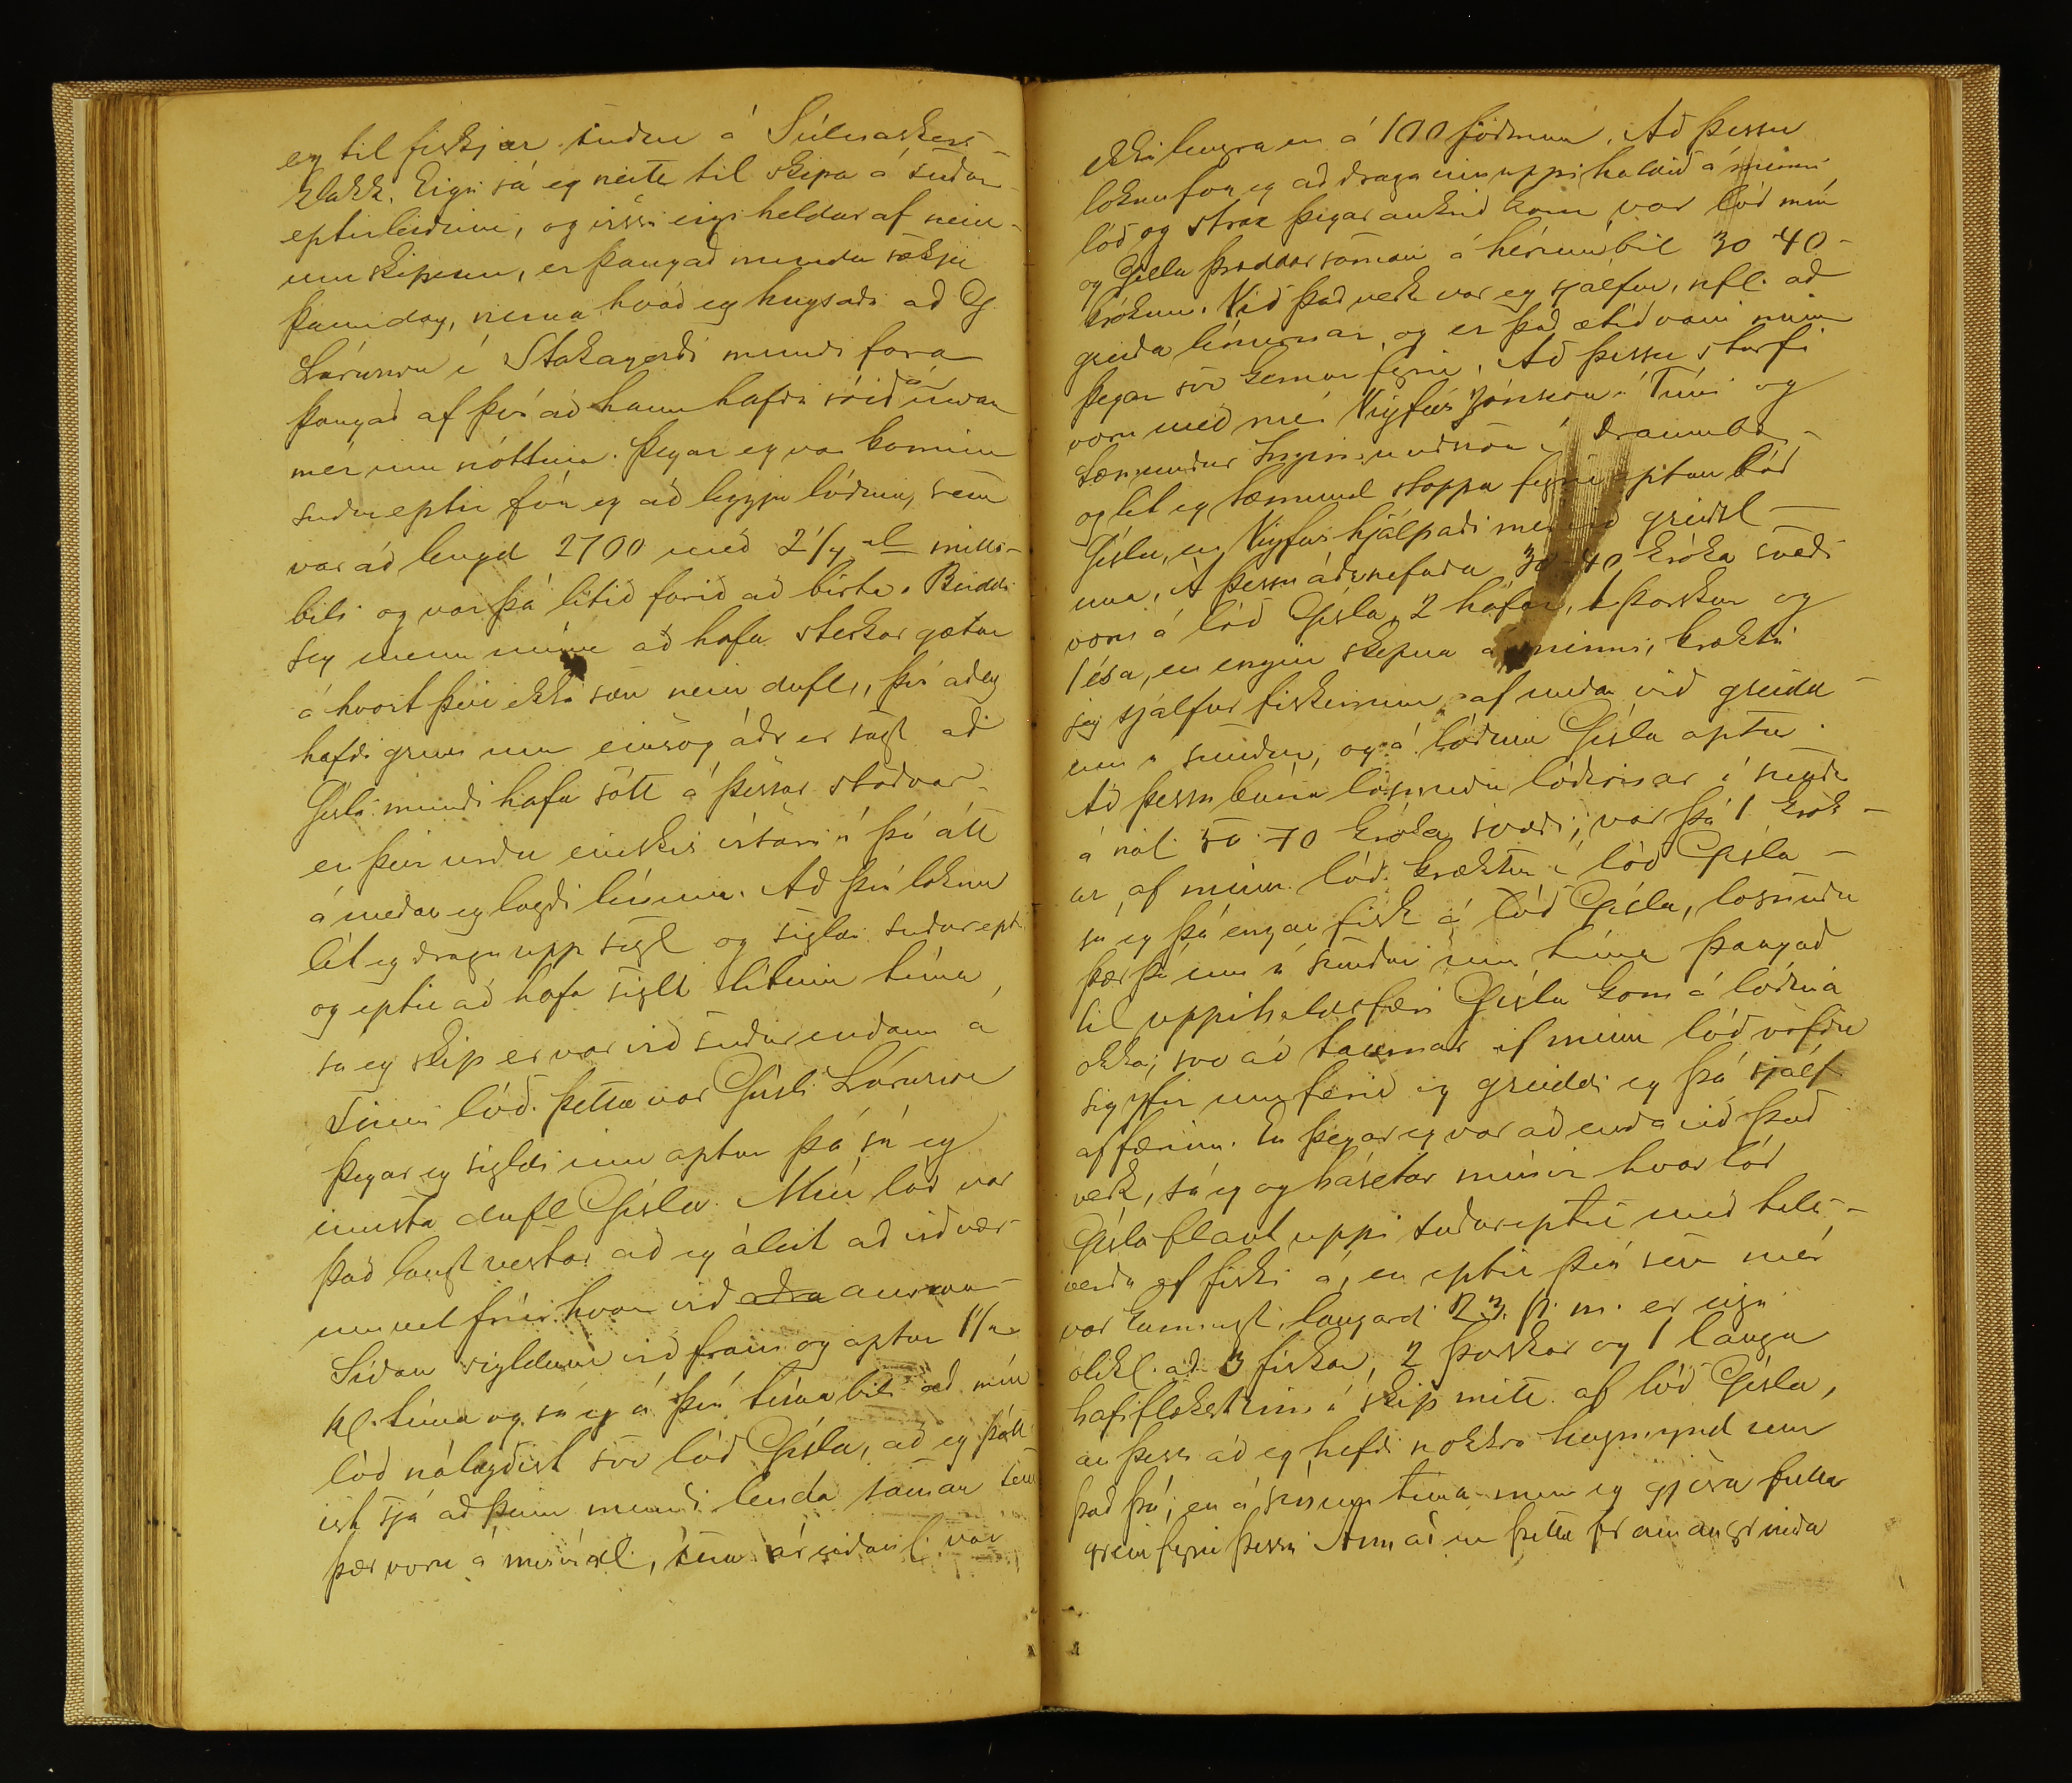 eg til fiskjar suður á Súlnaskers-
klakk. Eigi sá eg neitt til skipa á suður-
eptirleiðinni, og vissi eigi heldur af nein-
um skipum, er þangað mundu sækja
þann dag, nema hvað eg hugsaði að G.
Lárusson í Stakagerði mundi fara
þangað af því að hann hafði róið á undan
mér um nóttina. Þegar eg var kominn
suðureptir fór eg að leggja lóðina, sem
var að lengd 2700 með 2 1/4 al milli-
bili og var þá lítið farið að birta. Beiddi
eg menn mína að hafa sterkar gætur
á hvort þeir ekki sæu nein dufl, því að eg
hafði grun um einsog áðr er sagt að
Gísli mundi hafa sótt á þessar stöðvar
en þeir urðu einskis vísari í þá átt
á meðan eg lagði línuna. Að því loknu
lét eg draga upp segl og sigldi suðurept
og eptir að hafa siglt lítinn tíma,
sá eg skip er var við suðurendann á
sinni lóð. Þetta var Gísli Lárusson
Þegar eg sigldi inn aptur þá sá eg
innsta dufl Gísla. Mín lóð var
það langt vestar að eg áleit að við vær-
um vel fríir hvor við aðra annan
Síðan sigldum við fram og aptur 1 1/2
kl. tíma og sá eg á því tímabili að mín
lóð nálægðist svo lóð Gísla, að eg þótt
ist sjá að þeim mundi lenda saman sem
þær voru á misvíxl, sem var
ekki lengra en á 100 föðmum. Að þessu
loknu fór eg að draga inn uppihaldið á minni
lóð og strax þegar ankrið kom var lóð mín
og Gísla þræddar saman á hérumbil 30-40-
krókum. Við það verk var eg sjálfur, nfl. að
greiða línurnar, og er það ætíð vani minn
þegar svo kemur fyrir. Að þessu starfi
voru með mér Vigfús Jónsson í Túni og
Sæmundur Ingimundsson í Draumbæ-
og lét eg Sæmund stoppa fyrir aptan lóð
Gísla, en Vigfús hjálpaði mér við greiðsl-
una. Á þessu áðurnefnda 30-40 króka svæði
voru á lóð Gísla, 2 háfar, 1 þorskur og
1 ísa, en engin skepna á minni, krækti
jeg sjálfur fiskinum af meðan við greidd-
um í sundur, og á lóðina Gísla aptur.
Að þessu búnu losnuðu lóðirnar í sundr
á nál. 50-70 króka svæði; var þá 1 krók-
ur af minni lóð kræktur í lóð Gísla-
sá eg þá engan fisk á lóð Gísla, losnuðu
þær þá enn í sundur um tíma þangað
til uppihaldsfæri Gísla kom á lóðina
okka; svo að taumar af minni lóð vöfðu
sig yfir um færið og greiddi eg þá sjálf
af færinu. En þegar eg var að enda við það
verk, sá eg og hásetar mínir hvar lóð
Gísla flaut uppi suðureptir með tals-
verðu af fiski á, en eptir því sem mér
var kunnugt laugard. 23. f. m. er eigi
ólíkl. að 3 fiskar, 2 þorskar og 1 langa
hafi flækst inn í skip mitt af lóð Gísla,
án þess að eg hefði nokkra hugmynd um
það þá; en á sínum tíma mun eg gjöra fulla
grein fyrir þessu Annað en þetta framangreinda